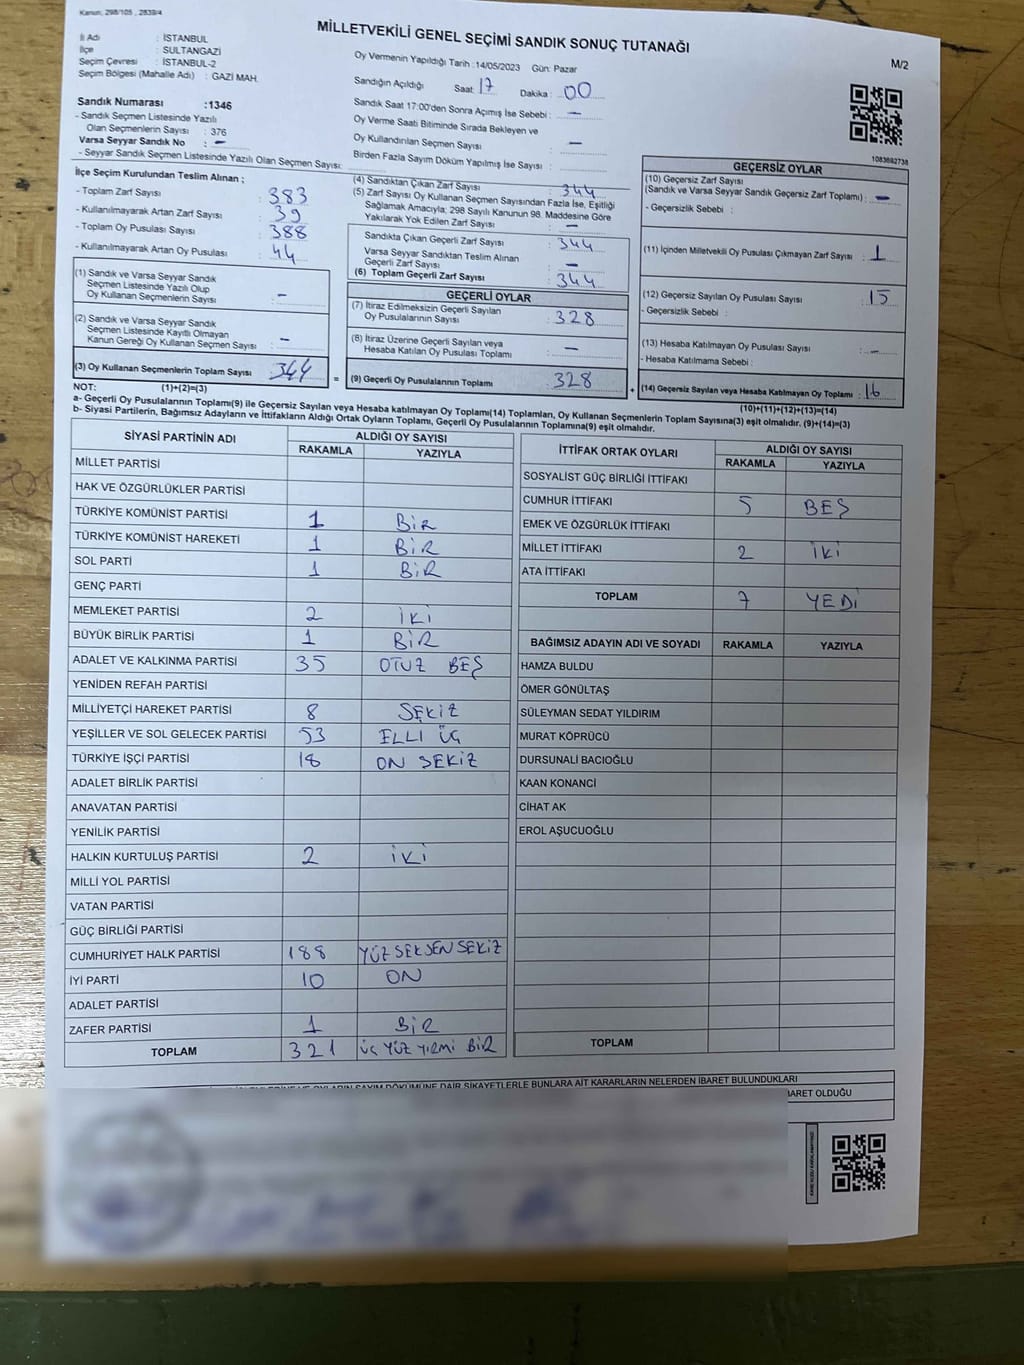 Kanun: 298/105 , 2839/4
MİLLETVEKİLİ GENEL SEÇİMİ SANDIK SONUÇ TUTANAĞI
M/2
İl Adı : İSTANBUL
İlçe : SULTANGAZİ
Seçim Çevresi : İSTANBUL-2
Seçim Bölgesi (Mahalle Adı) : GAZİ MAH.
Sandık Numarası :1346
- Sandık Seçmen Listesinde Yazılı
Olan Seçmenlerin Sayısı : 376
Varsa Seyyar Sandık No : -
- Seyyar Sandık Seçmen Listesinde Yazılı Olan Seçmen Sayısı:
Oy Vermenin Yapıldığı Tarih :14/05/2023 Gün: Pazar
Sandığın Açıldığı Saat : 17 Dakika : 00
Sandık Saat 17:00'den Sonra Açımış İse Sebebi : -
Oy Verme Saati Bitiminde Sırada Bekleyen ve
Oy Kullandırılan Seçmen Sayısı : -
Birden Fazla Sayım Döküm Yapılmış İse Sayısı :
1083692738
İlçe Seçim Kurulundan Teslim Alınan ;
- Toplam Zarf Sayısı : 383
- Kullanılmayarak Artan Zarf Sayısı : 39
- Toplam Oy Pusulası Sayısı : 388
- Kullanılmayarak Artan Oy Pusulası : 44
(1) Sandık ve Varsa Seyyar Sandık
Seçmen Listesinde Yazılı Olup
Oy Kullanan Seçmenlerin Sayısı : -
(2) Sandık ve Varsa Seyyar Sandık
Seçmen Listesinde Kayıtlı Olmayan
Kanun Gereği Oy Kullanan Seçmen Sayısı : -
(3) Oy Kullanan Seçmenlerin Toplam Sayısı : 344
(4) Sandıktan Çıkan Zarf Sayısı : 344
(5) Zarf Sayısı Oy Kullanan Seçmen Sayısından Fazla İse, Eşitliği
Sağlamak Amacıyla; 298 Sayılı Kanunun 98. Maddesine Göre
Yakılarak Yok Edilen Zarf Sayısı : -
Sandıkta Çıkan Geçerli Zarf Sayısı : 344
Varsa Seyyar Sandıktan Teslim Alınan
Geçerli Zarf Sayısı : -
(6) Toplam Geçerli Zarf Sayısı : 344
GEÇERLİ OYLAR
(7) İtiraz Edilmeksizin Geçerli Sayılan
Oy Pusulalarının Sayısı : 328
(8) İtiraz Üzerine Geçerli Sayılan veya
Hesaba Katılan Oy Pusulası Toplamı : -
= (9) Geçerli Oy Pusulalarının Toplamı : 328
GEÇERSİZ OYLAR
(10) Geçersiz Zarf Sayısı
(Sandık ve Varsa Seyyar Sandık Geçersiz Zarf Toplamı) : -
- Geçersizlik Sebebi :
(11) İçinden Milletvekili Oy Pusulası Çıkmayan Zarf Sayısı : 1
(12) Geçersiz Sayılan Oy Pusulası Sayısı : 15
- Geçersizlik Sebebi :
(13) Hesaba Katılmayan Oy Pusulası Sayısı : -
- Hesaba Katılmama Sebebi :
+ (14) Geçersiz Sayılan veya Hesaba Katılmayan Oy Toplamı : 16
NOT: (1)+(2)=(3)
(10)+(11)+(12)+(13)=(14)
a- Geçerli Oy Pusulalarının Toplamı(9) ile Geçersiz Sayılan veya Hesaba katılmayan Oy Toplamı(14) Toplamları, Oy Kullanan Seçmenlerin Toplam Sayısına(3) eşit olmalıdır. (9)+(14)=(3)
b- Siyasi Partilerin, Bağımsız Adayların ve İttifakların Aldığı Ortak Oyların Toplamı, Geçerli Oy Pusulalarının Toplamına(9) eşit olmalıdır.
SİYASİ PARTİNİN ADI ALDIĞI OY SAYISI
RAKAMLA YAZIYLA
MİLLET PARTİSİ
HAK VE ÖZGÜRLÜKLER PARTİSİ
TÜRKİYE KOMÜNİST PARTİSİ 1 BİR
TÜRKİYE KOMÜNİST HAREKETİ 1 BİR
SOL PARTİ 1 BİR
GENÇ PARTİ
MEMLEKET PARTİSİ 2 İKİ
BÜYÜK BİRLİK PARTİSİ 1 BİR
ADALET VE KALKINMA PARTİSİ 35 OTUZ BEŞ
YENİDEN REFAH PARTİSİ
MİLLİYETÇİ HAREKET PARTİSİ 8 SEKİZ
YEŞİLLER VE SOL GELECEK PARTİSİ 53 ELLİ ÜÇ
TÜRKİYE İŞÇİ PARTİSİ 18 ON SEKİZ
ADALET BİRLİK PARTİSİ
ANAVATAN PARTİSİ
YENİLİK PARTİSİ
HALKIN KURTULUŞ PARTİSİ 2 İKİ
MİLLİ YOL PARTİSİ
VATAN PARTİSİ
GÜÇ BİRLİĞİ PARTİSİ
CUMHURİYET HALK PARTİSİ 188 YÜZ SEKSEN SEKİZ
İYİ PARTİ 10 ON
ADALET PARTİSİ
ZAFER PARTİSİ 1 BİR
TOPLAM 321 ÜÇ YÜZ YİRMİ BİR
İTTİFAK ORTAK OYLARI ALDIĞI OY SAYISI
RAKAMLA YAZIYLA
SOSYALİST GÜÇ BİRLİĞİ İTTİFAKI
CUMHUR İTTİFAKI 5 BEŞ
EMEK VE ÖZGÜRLÜK İTTİFAKI
MİLLET İTTİFAKI 2 İKİ
ATA İTTİFAKI
TOPLAM 7 YEDİ
BAĞIMSIZ ADAYIN ADI VE SOYADI RAKAMLA YAZIYLA
HAMZA BULDU
ÖMER GÖNÜLTAŞ
SÜLEYMAN SEDAT YILDIRIM
MURAT KÖPRÜCÜ
DURSUNALİ BACIOĞLU
KAAN KONANCİ
CİHAT AK
EROL AŞUCUOĞLU
TOPLAM
OYLARIN SAYIM DÖKÜMÜNE DAİR ŞİKAYETLERLE BUNLARA AİT KARARLARIN NELERDEN İBARET BULUNDUKLARI
İBARET OLDUĞU